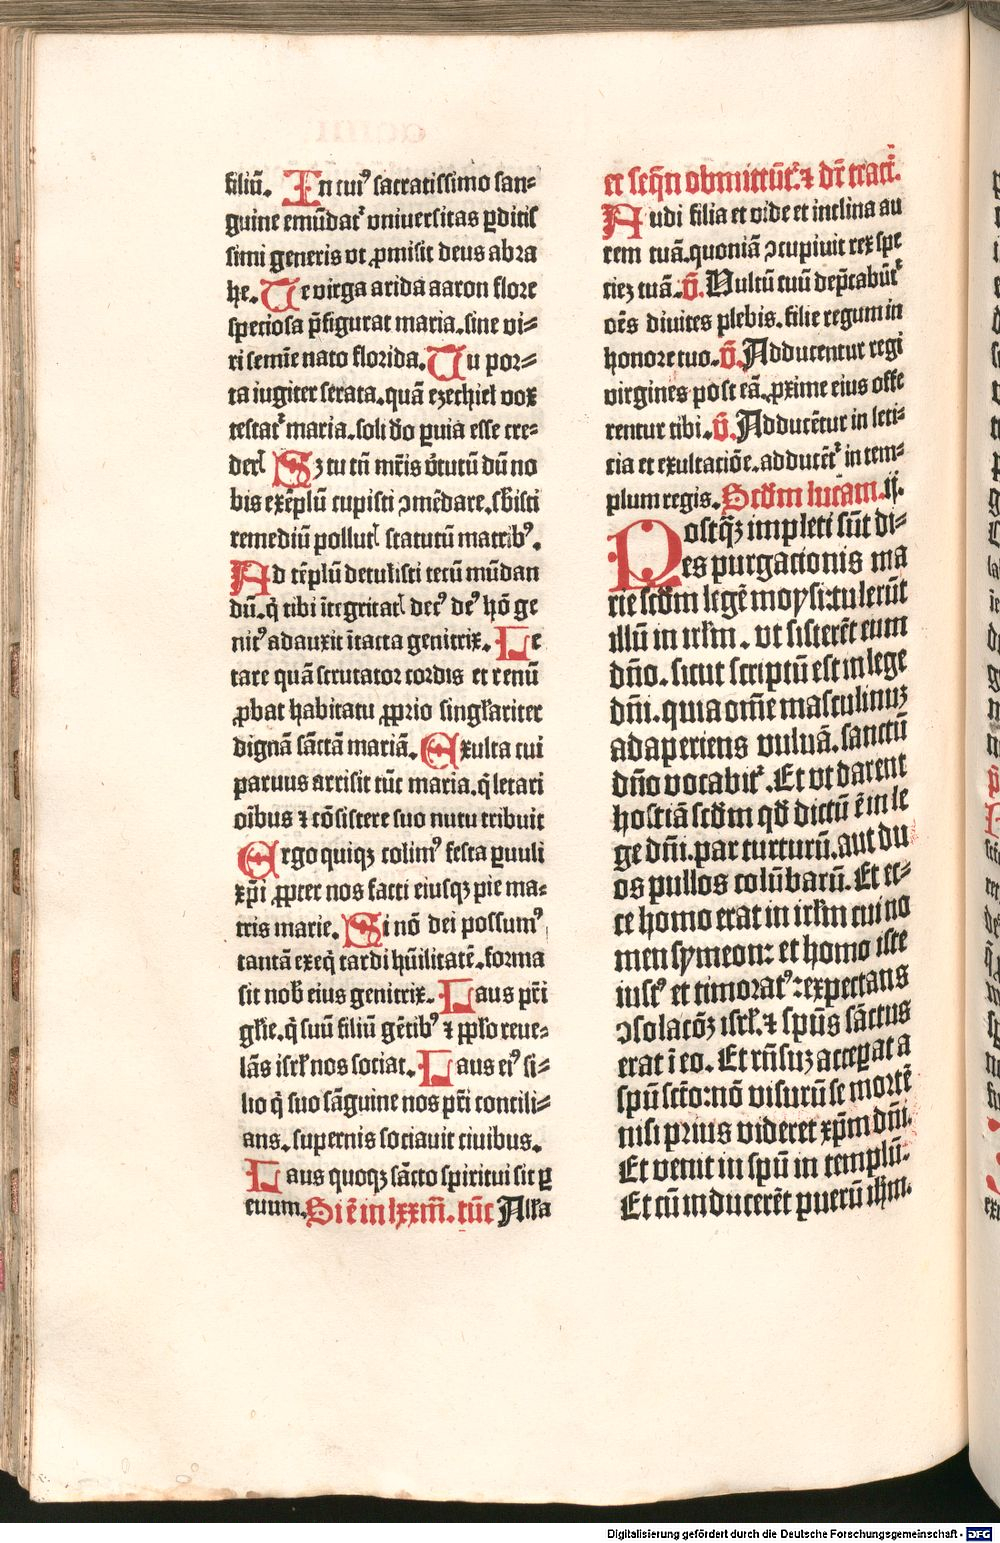 filiū. In cui⁹ sacratissimo san⸗
guine emūdat᷑ vniuersitas ꝑditis
simi generis vt ꝓmisit deus abra
he. Te virga arida aaron flore
speciosa p̄figurat maria. sine vi⸗
ri semīe nato florida. Tu por⸗
ta iugiter serata. quā ezechiel vox
testat᷑ maria. soli đo ꝑuia esse cre⸗
derꝭ Sꝫ tu tn̄ mr̄is v̓tutū dū no
bis exēplū cupisti ↄmēdare. sb̓isti
remediū pollutꝭ statutū matrib⁹.
Ad tēplū detulisti tecū mūdan
dū. q̓ tibi ītegritatꝭ dec⁹ de⁹ hō ge
nit⁹ adauxit ītacta genitrix. Le
tare quā scrutator cordis et renū
ꝓbat habitatu ꝓprio singl̓ariter
dignā sāctā mariā. Exulta cui
paruus arrisit tūc maria. q̓ letari
oīb̓us ⁊ cōsistere suo nutu tribuit
Ergo quiqꝫ colim⁹ festa ꝑuuli
xp̄i ꝓpter nos facti eiusqꝫ pie ma⸗
tris marie. Si nō dei possum⁹
tantā exeq̓ tardi hūilitatē. forma
sit nob̓ eius genitrix. Laus pr̄i
gl̓ie. q̓ suū filiū gētib⁹ ⁊ ppl̓o reue⸗
lās isrl̓ nos sociat. Laus ei⁹ fi⸗
lio q̓ suo sāguine nos pr̄i concili⸗
ans. supernis sociauit ciuibus.
Laus quoqꝫ sācto spiritui sit ꝑ
euum. Si ē in lxxm̄. tūc Al̓la
et seq̄n obmittūt᷑. ⁊ dr̄ tract᷑.
Audi filia et vide et inclina au
rem tuā. quoniā ↄcupiuit rex spe
ciez tuā. v̄. Vultū tuū dep̄cabūt᷑
oēs diuites plebis. filie regum in
honore tuo. v̄. Adducentur regi
virgines post eā. ꝓxime eius offe
rentur tibi. v̄. Adducētur in leti⸗
cia et exultatiōe. adducēt᷑ in tem⸗
plum regis. Scđm lucam. ij.
Postq̄ꝫ impleti sūt di⸗
es purgacionis ma
rie scđm legē moysi: tulerūt
illū in irl̓m. vt sisterēt eum
dn̄o. sicut scriptū est in lege
dn̄i. quia om̄e masculinuꝫ
adaperiens vuluā. sanctū
dn̄o vocabit᷑. Et vt darent
hostiā scđm qđ dictū ē in le
ge dn̄i. par turturū. aut du
os pullos colūbarū. Et ec⸗
ce homo erat in irl̓m cui no
men symeon: et homo iste
iust⁹ et timorat⁹: expectans
ↄsolacōꝫ isrl̓. ⁊ sp̄us sāctus
erat ī eo. Et rn̄suꝫ accepat a
sp̄u scto: nō visurū se mortē
nisi prius videret xp̄m dn̄i.
Et venit in sp̄u in templū.
Et cū inducerēt puerū ih̄m.
Digitalisierung gefördert durch die Deutsche Forschungsgemeinschaft - DFG